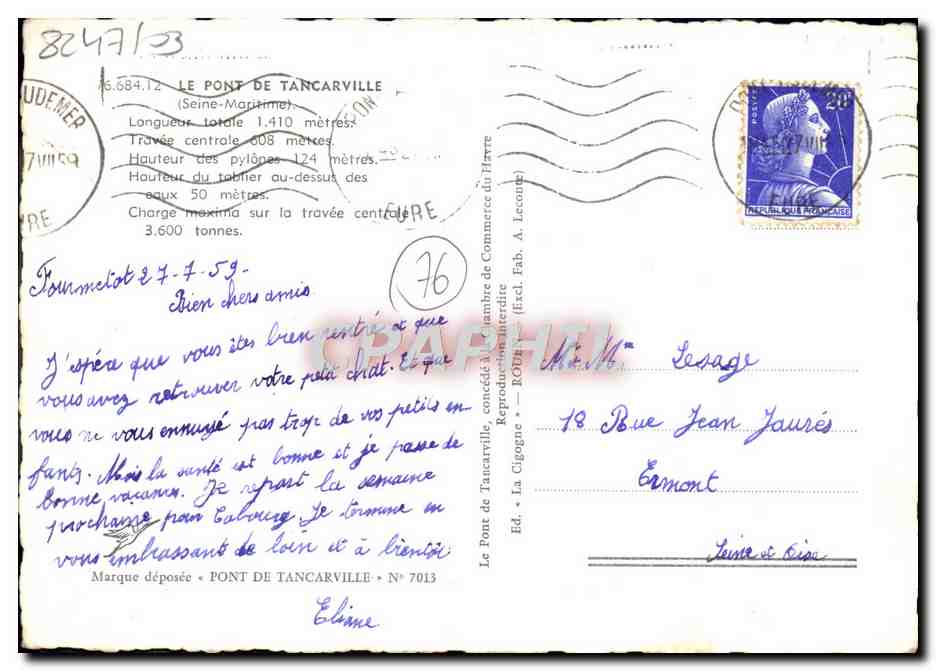 8247/03
76.684.12 LE PONT DE TANCARVILLE
(Seine-Maritime).
Longueur totale 1.410 mètres.
Travée centrale 608 mètres.
Hauteur des pylônes 124 mètres.
Hauteur du tablier au-dessus des
eaux 50 mètres.
Charge maxima sur la travée centrale
3.600 tonnes.
UDEMER
7 VII 59
EURE
PONT
EURE
76
Fourmetot 27-7-59-
Bien chers amis
J'espère que vous êtes bien rentré et que
vous avez retrouver votre petit chat. Et que
vous ne vous ennuyé pas trop de vos petits en
fants. Mois la santé est bonne et je passe de
bonne vacances. Je repart la semaine
prochaine pour Cabourg. Je termine en
vous embrassant de loin et à bientôt
Marque déposée « PONT DE TANCARVILLE » N° 7013
Eliane
Le Pont de Tancarville, concédé à la Chambre de Commerce du Havre
Reproduction interdite
Ed. « La Cigogne » — ROUEN (Excl. Fab. A. Leconte)
CPAPHIL
POSTES
20F
REPUBLIQUE FRANÇAISE
EURE
M. Mme Lesage
18 Rue Jean Jaurés
Ermont
Seine et Oise